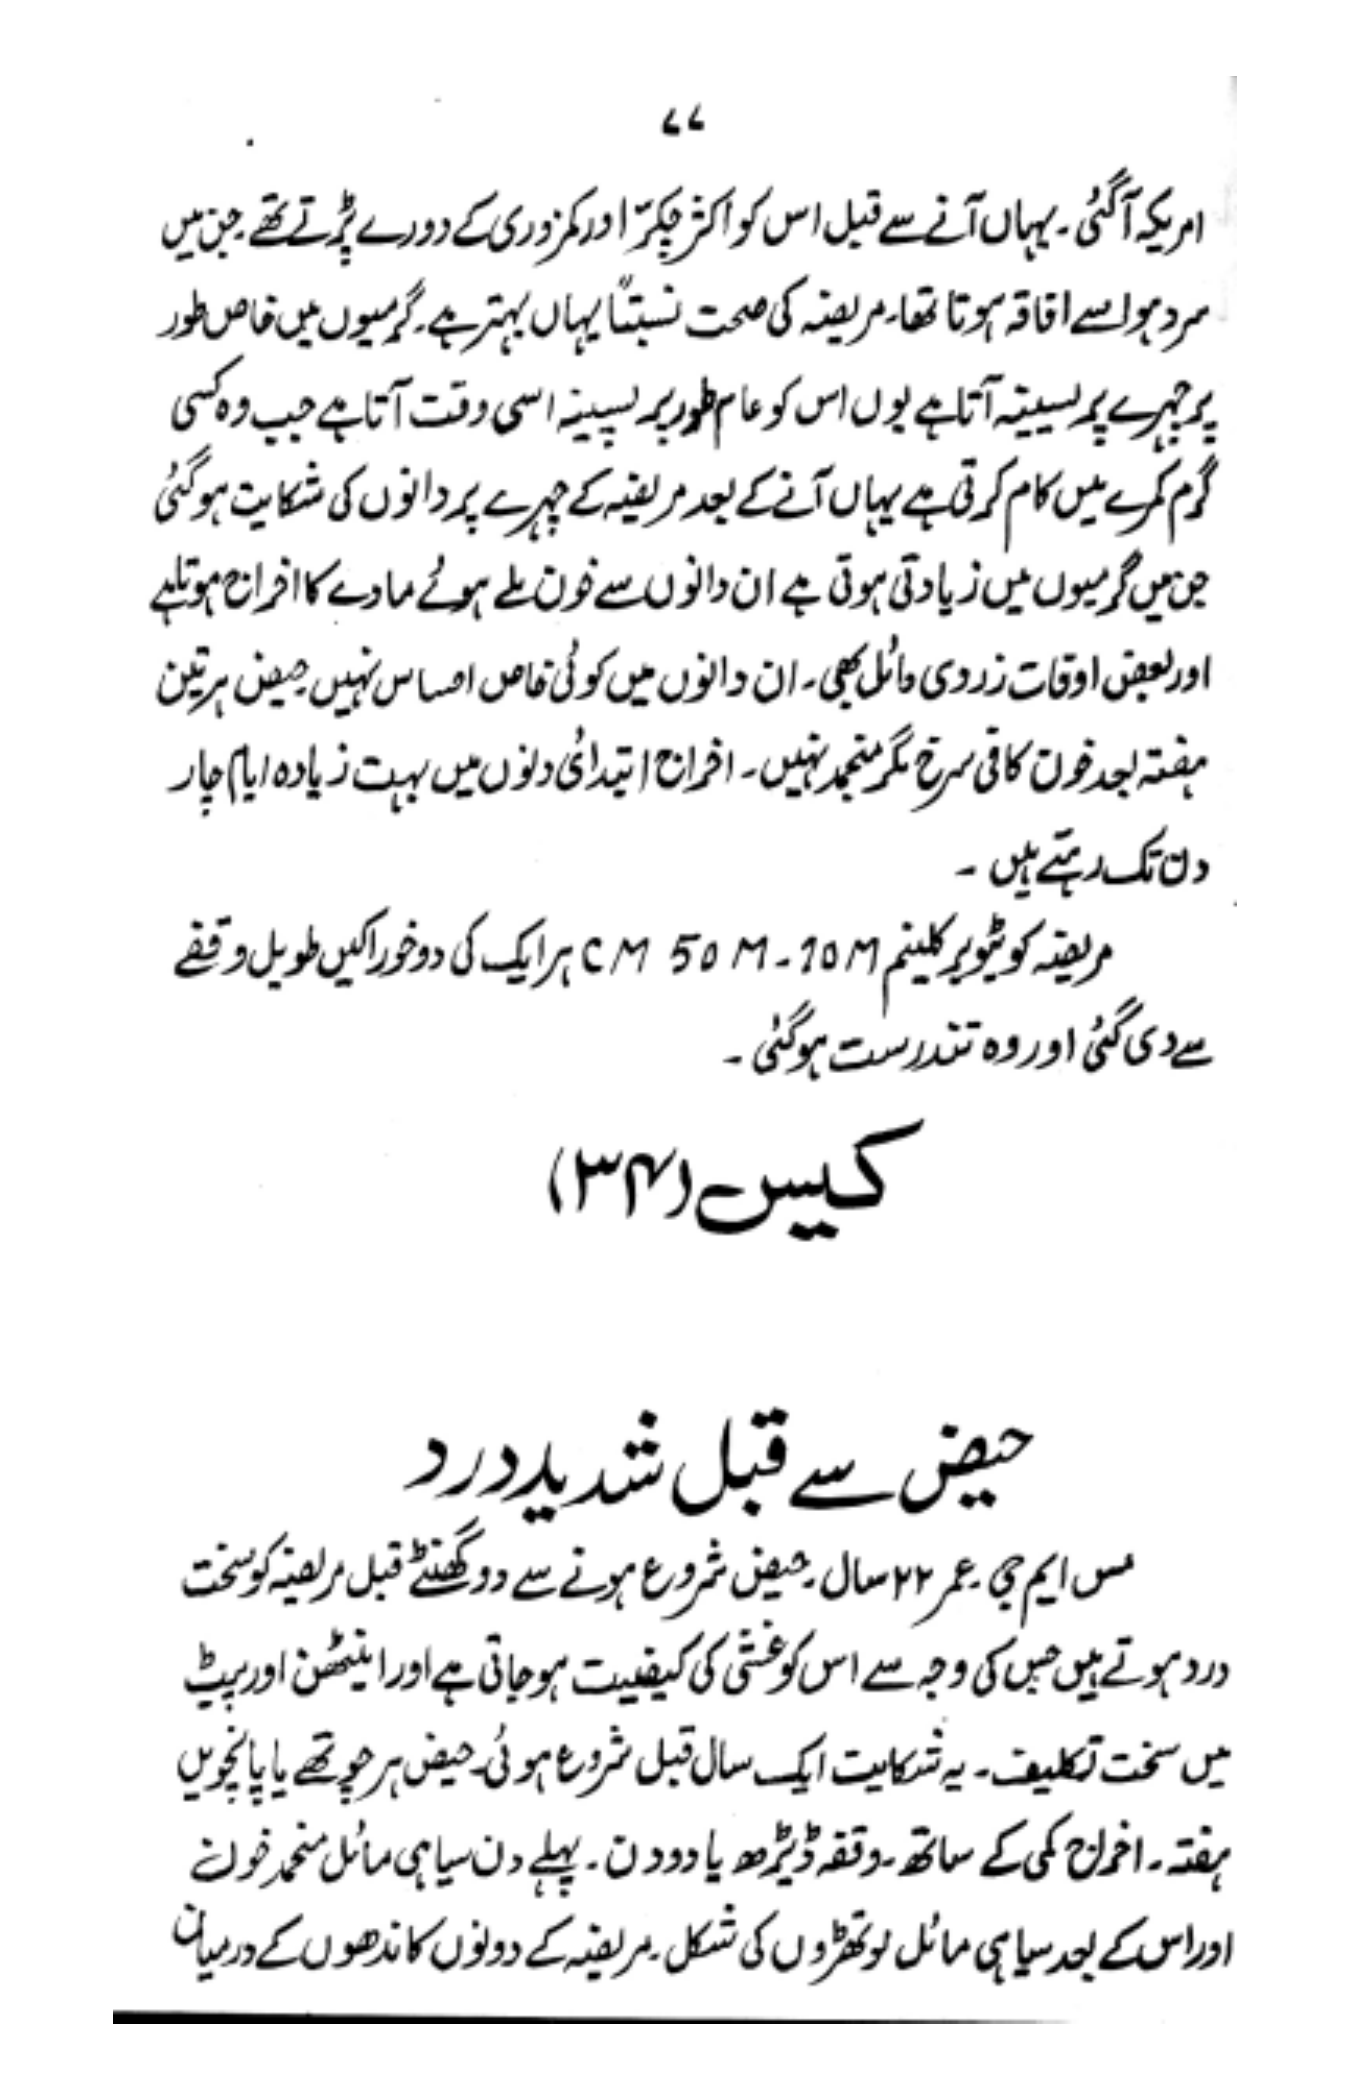 ۷۷
امریکہ آگئی۔ یہاں آنے سے قبل اس کو اکثر چکر اور کمزوری کے دورے پڑتے تھے۔ جن میں
سرد ہوا سے افاقہ ہوتا تھا۔ مریضہ کی صحت نسبتاً یہاں بہتر ہے۔ گرمیوں میں خاص طور
پر چہرے پر پسینہ آتا ہے یوں اس کو عام طور پر پسینہ اسی وقت آتا ہے جب وہ کسی
گرم کمرے میں کام کرتی ہے یہاں آنے کے بعد مریضہ کے چہرے پر دانوں کی شکایت ہوگئی
جن میں گرمیوں میں زیادتی ہوتی ہے ان دانوں سے خون ملے ہوئے مادے کا اخراج ہوتا ہے
اور بعض اوقات زردی مائل بھی۔ ان دانوں میں کوئی خاص احساس نہیں۔ حیض ہر تین
ہفتہ بعد خون کافی سرخ مگر منجمد نہیں۔ اخراج ابتدائی دنوں میں بہت زیادہ ایام چار
دن تک رہتے ہیں۔
مریضہ کو ٹیوبر کلینم 10M۔ 50M CM ہر ایک کی دو خوراکیں طویل وقفے
سے دی گئی اور وہ تندرست ہوگئی۔
کیس (۳۴)
حیض سے قبل شدید درد
مس ایم جی۔ عمر ۲۲ سال۔ حیض شروع ہونے سے دو گھنٹے قبل مریضہ کو سخت
درد ہوتے ہیں جس کی وجہ سے اس کو غشی کی کیفیت ہوجاتی ہے اور اینٹھن اور پیٹ
میں سخت تکلیف۔ یہ شکایت ایک سال قبل شروع ہوئی۔ حیض ہر چوتھے یا پانچویں
ہفتہ۔ اخراج کمی کے ساتھ۔ وقفہ ڈیڑھ یا دو دن۔ پہلے دن سیاہی مائل منجمد خون
اور اس کے بعد سیاہی مائل لوتھڑوں کی شکل۔ مریضہ کے دونوں کاندھوں کے درمیان